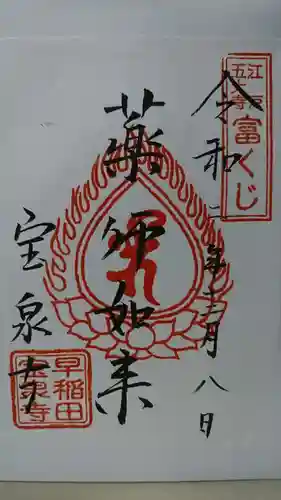 江戸五大寺
富くじ
令和二年十二月八日
薬師如来
宝泉寺
早稲田
宝泉寺